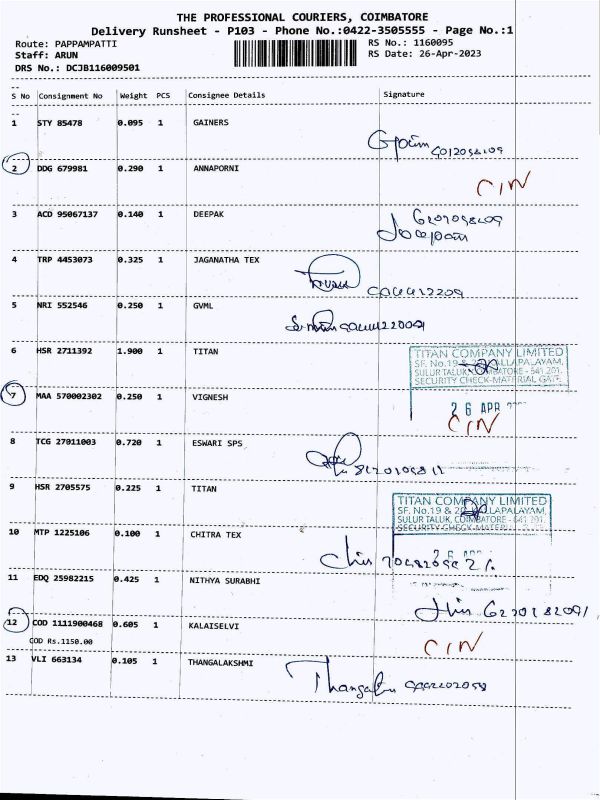 THE PROFESSIONAL COURIERS, COIMBATORE
Delivery Runsheet - P103 - Phone No.:0422-3505555 - Page No.:1
Route: PAPPAMPATTI RS No.: 1160095
Staff: ARUN RS Date: 26-Apr-2023
DRS No.: DCJB116009501
S No Consignment No Weight PCS Consignee Details Signature
1 STY 85478 0.095 1 GAINERS
2 DDG 679981 0.290 1 ANNAPORNI
CIN
3 ACD 95067137 0.140 1 DEEPAK
4 TRP 4453073 0.325 1 JAGANATHA TEX
5 NRI 552546 0.250 1 GVML
6 HSR 2711392 1.900 1 TITAN
TITAN COMPANY LIMITED
SF. No.19 &
SULUR TALUK, COIMBATORE - 641 201.
SECURITY CHECK-MATERIAL GATE
7 MAA 570002302 0.250 1 VIGNESH
26 APR
CIN
8 TCG 27011003 0.720 1 ESWARI SPS
9 HSR 2705575 0.225 1 TITAN
TITAN COMPANY LIMITED
SF. No.19 &
SULUR TALUK, COIMBATORE - 641 201.
SECURITY CHECK-MATERIAL
10 MTP 1225106 0.100 1 CHITRA TEX
11 EDQ 25982215 0.425 1 NITHYA SURABHI
12 COD 1111900468 0.605 1 KALAISELVI
COD Rs.1150.00
CIN
13 VLI 663134 0.105 1 THANGALAKSHMI